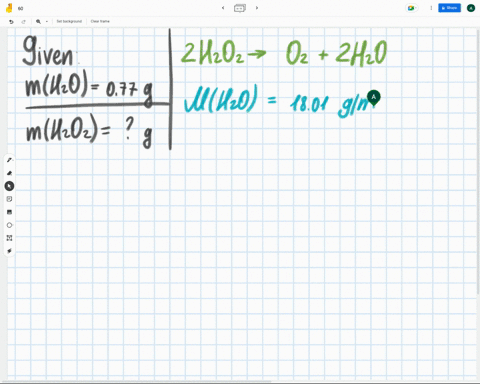 60
Set background
Clear frame
Share
A
Given
m(H₂O) = 0.77 g
m(H₂O₂) = ? g
2H₂O₂ → O₂ + 2H₂O
M(H₂O) = 18.01 g/m
A